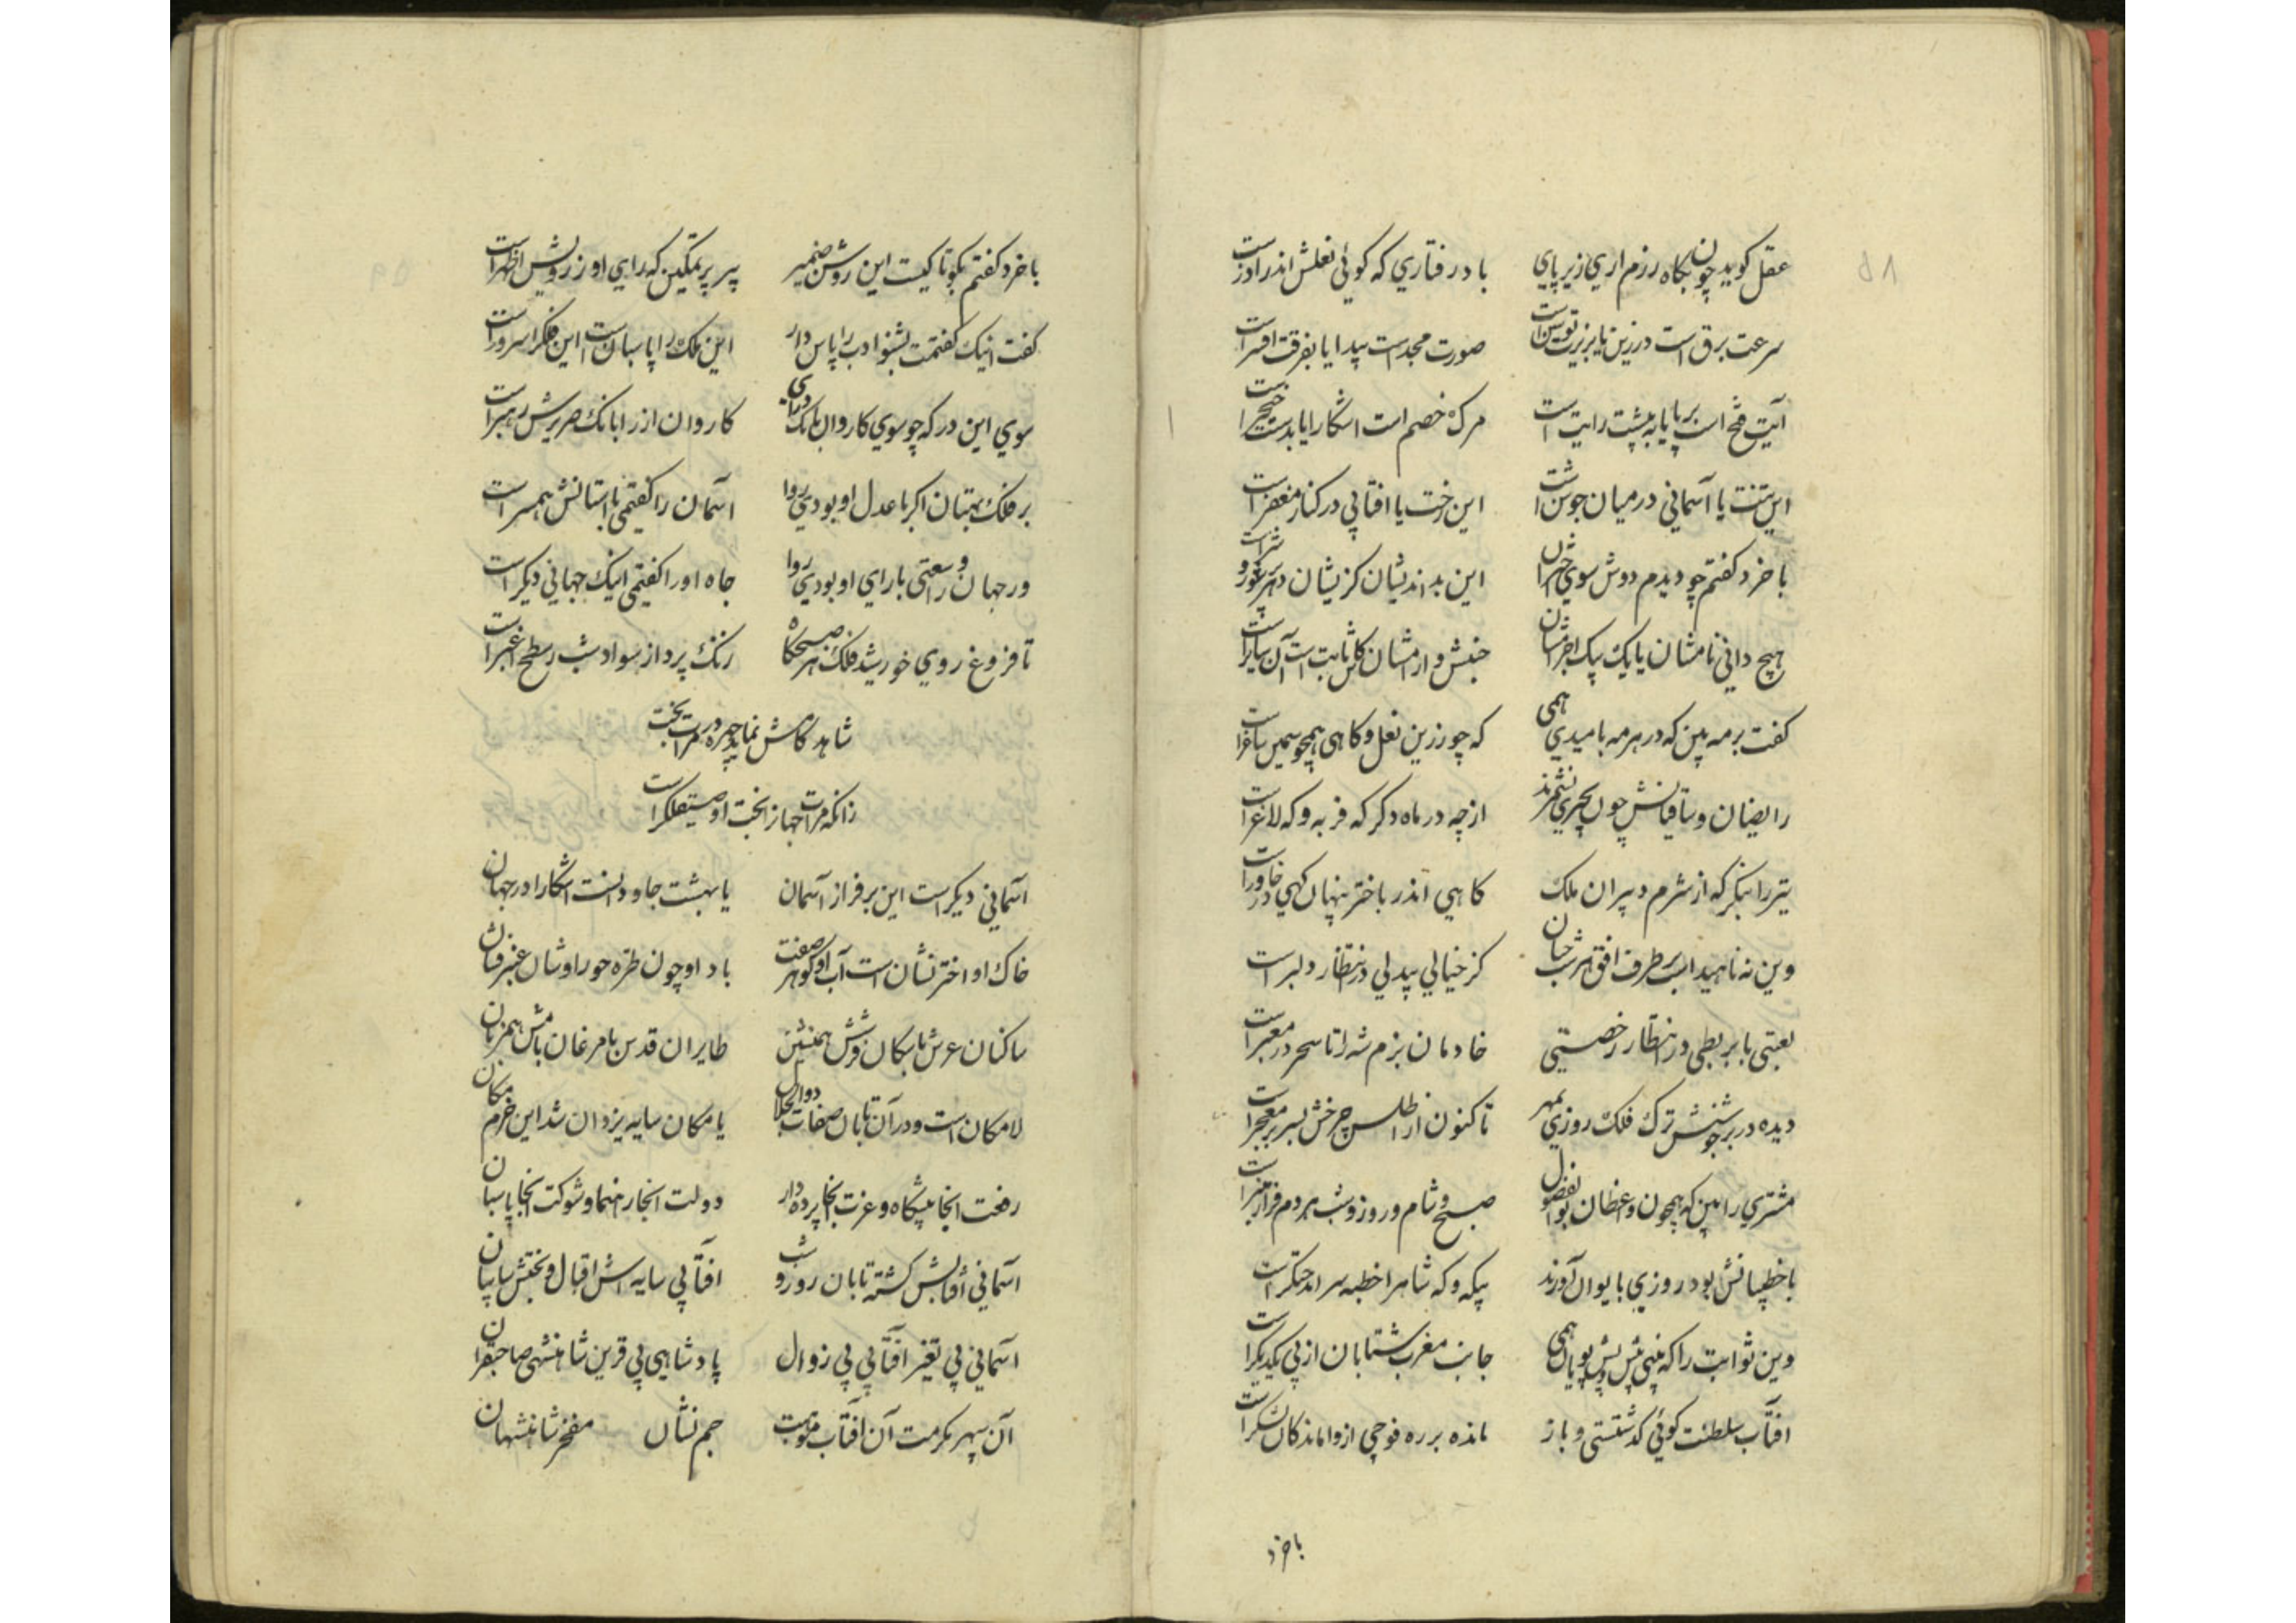 عقل کوید چون بکاه رزم اری زیر پای بادرفتاری که کوئی نعلش اندر اذر است
سرعت برق است در زین یا بزیرت توسن است صورت مجد است پیدا یا بفرقت افسر است
آیت فتح است برپا یا به پشت رایت است مرک خصم است اشکارا یا بدستت خنجر است
این تنت یا آسمانی در میان جوشن است این رخت یا افتابی در کنار مغفر است
با خرد کفتم چو دیدم دوش سوی اختران این بد اندیشان کزیشان در هر سر شر است
هیچ دانی نامشان یا یک بیک اجرامشان جنبش و ارامشان کاین ثابت است آن سایر است
کفت بر مه بین که در هر مه بامیدی همی که چو زرین نعل و کاهی همچو سیمین ساغر است
رایضان و ساقیانش چون بچیزی نشمرند ازچه در ماه دکر که فربه و که لاغر است
تیر را بنکر که از شرم دبیران ملک کاهی اندر باختر پنهان کهی در خاور است
وین نه ناهید است بر طرف افق هر شب چنان کز خیالی بیدلی در انتظار دلبر است
لعبتی با بربطی در انتظار رخصتی خادمان بزم شه را تا سحر در معبر است
دیده در بر جوشنش ترک فلک روزی بمهر تاکنون از اطلس چرخش بسر بر معجر است
مشتری را بین که همچون واعظان بوالفضول صبح و شام و روز و شب هر دم فراز منبر است
با خطیبانش بود روزی بایوان آورند بیکه و که شاهرا خطبه سرا اندر حنکر است
وین ثوابت را که بینی پیش و پس پویان همی جانب مغرب شتابان از پی یکدیکر است
افتاب سلطنت کوئی کدشتستی و باز مانده بر ره فوجی از واماندکان لشکر است
باخرد
باخرد کفتم بکو تا کیست این روشن ضمیر پیر پر تمکین که رای او ز رویش اظهر است
کفت اینک کفتمت بشنو ادب را پاس دار این ملک را پاسبان است این فلک را سرور است
سوی این درکه چو سوی کاروان بانک درای کاروان از را بانک صریرش رهبر است
بر فلک بهتان اکر با عدل او بودی روا اسمان را کفتمی با آستانش همسر است
ور جهان را وسعتی با رای او بودی روا جاه او را کفتمی اینک جهانی دیکر است
تا فروغ روی خورشید فلک هر صبحکاه رنک پرداز سواد شب ز سطح اغبر است
شاهد کامش نماید چهره در مرات بخت
زانکه مرات جهانرا بخت او صیقلکر است
اسمانی دیکر است این بر فراز آسمان یا بهشت جاودانست اشکارا در جهان
خاک او اختر نشان است آب او کوهر صفت باد او چون طره حورا وشان عنبر فشان
ساکنان عرش با سکان فرشش همنشین طایران قدس با مرغان بامش همزبان
لامکان است و در آن تابان صفات ذوالجلال یا مکان سایه یزدان شد این خرم مکان
رفعت انجا پیشکاه و عزت انجا پرده دار دولت انجا رهنما و شوکت انجا پاسبان
اسمانی افتابش کشته تابان روز و شب افتابی سایه اش اقبال و بختش سایبان
اسمانی بی تغیر آفتابی بی زوال پادشاهی بی قرین شاهنشهی صاحبقران
آن سپهر مکرمت آن آفتاب موهبت جم نشان مفخر شاهنشهان